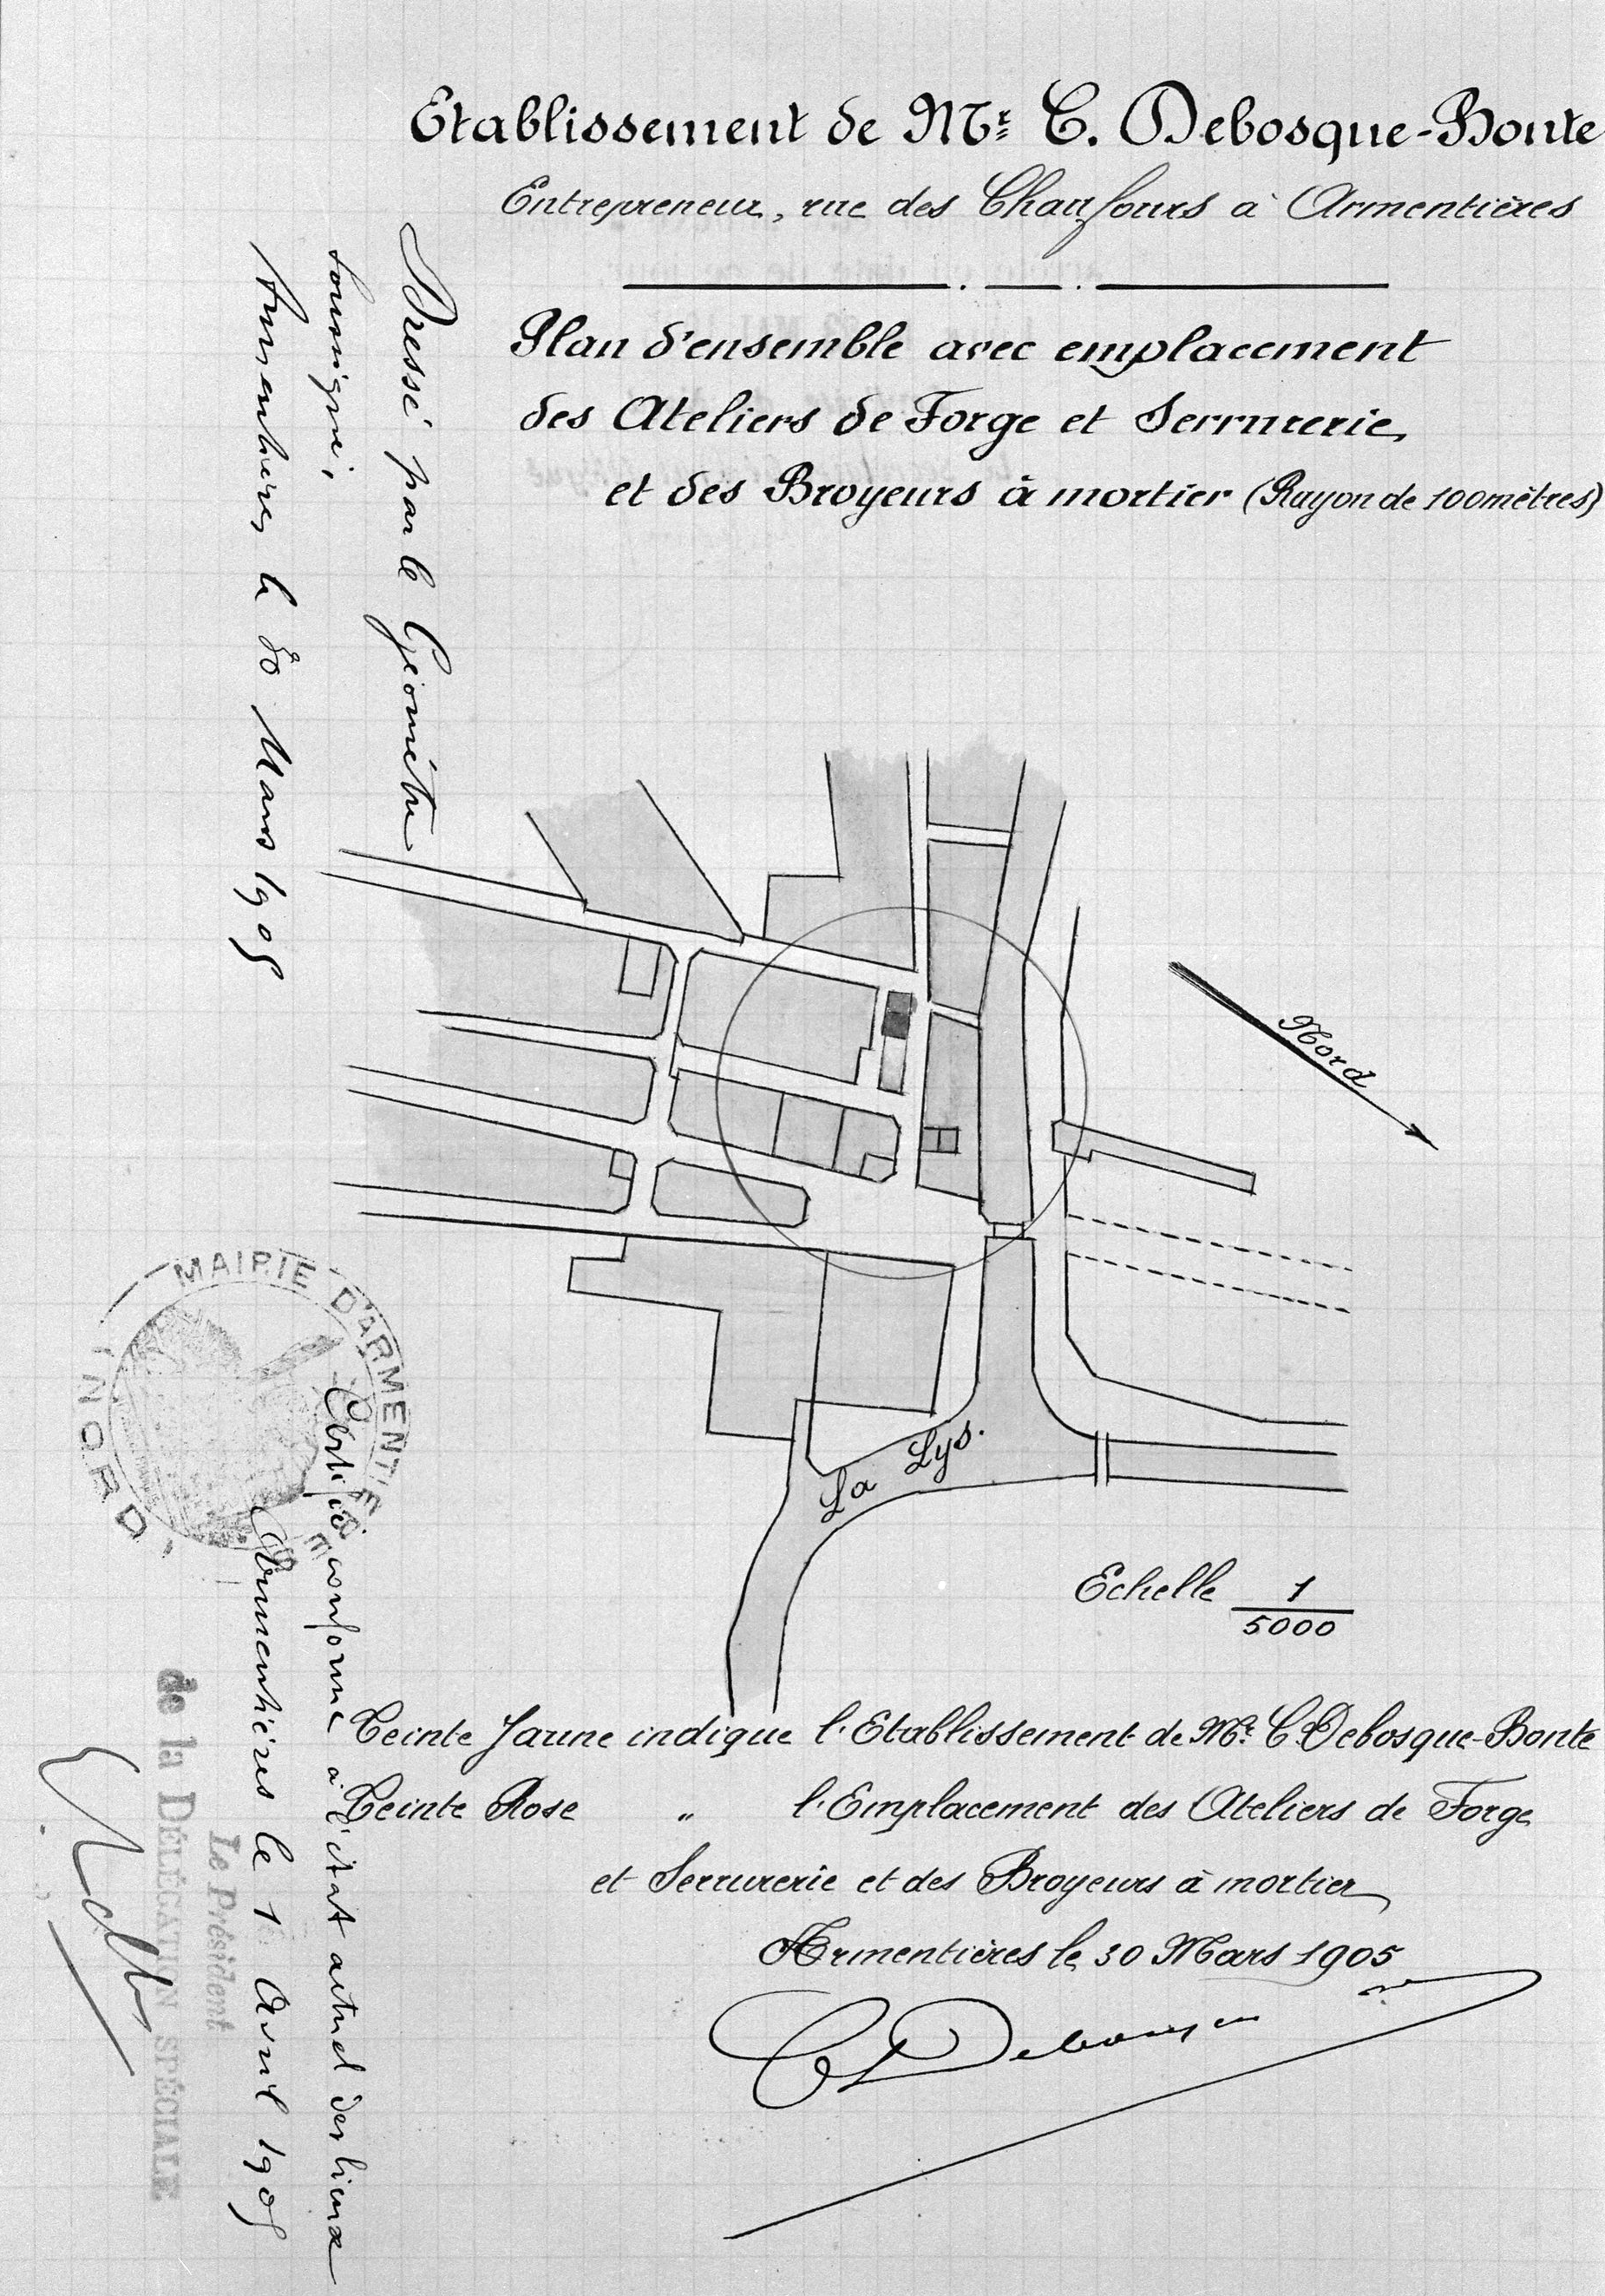 Etablissement de Mr. C. Debosque-Bonte
Entrepreneur, rue des Chauffours à Armentières
Plan d'ensemble avec emplacement
des Ateliers de Forge et Serrurerie,
et des Broyeurs à mortier (Rayon de 100 mètres)
Dressé par le Géomètre
soussigné,
Armentières le 30 Mars 1905
Nord
La Lys.
Echelle 1
5000
MAIRIE D'ARMENTIERES
NORD
Certifié conforme à l'état actuel des lieux
Armentières le 1 Avril 1905
Le Président
de la DÉLÉGATION SPÉCIALE
Teinte Jaune indique l'Etablissement de Mr. C. Debosque-Bonte
Teinte Rose " l'Emplacement des Ateliers de Forge
et Serrurerie et des Broyeurs à mortier
Armentières le 30 Mars 1905